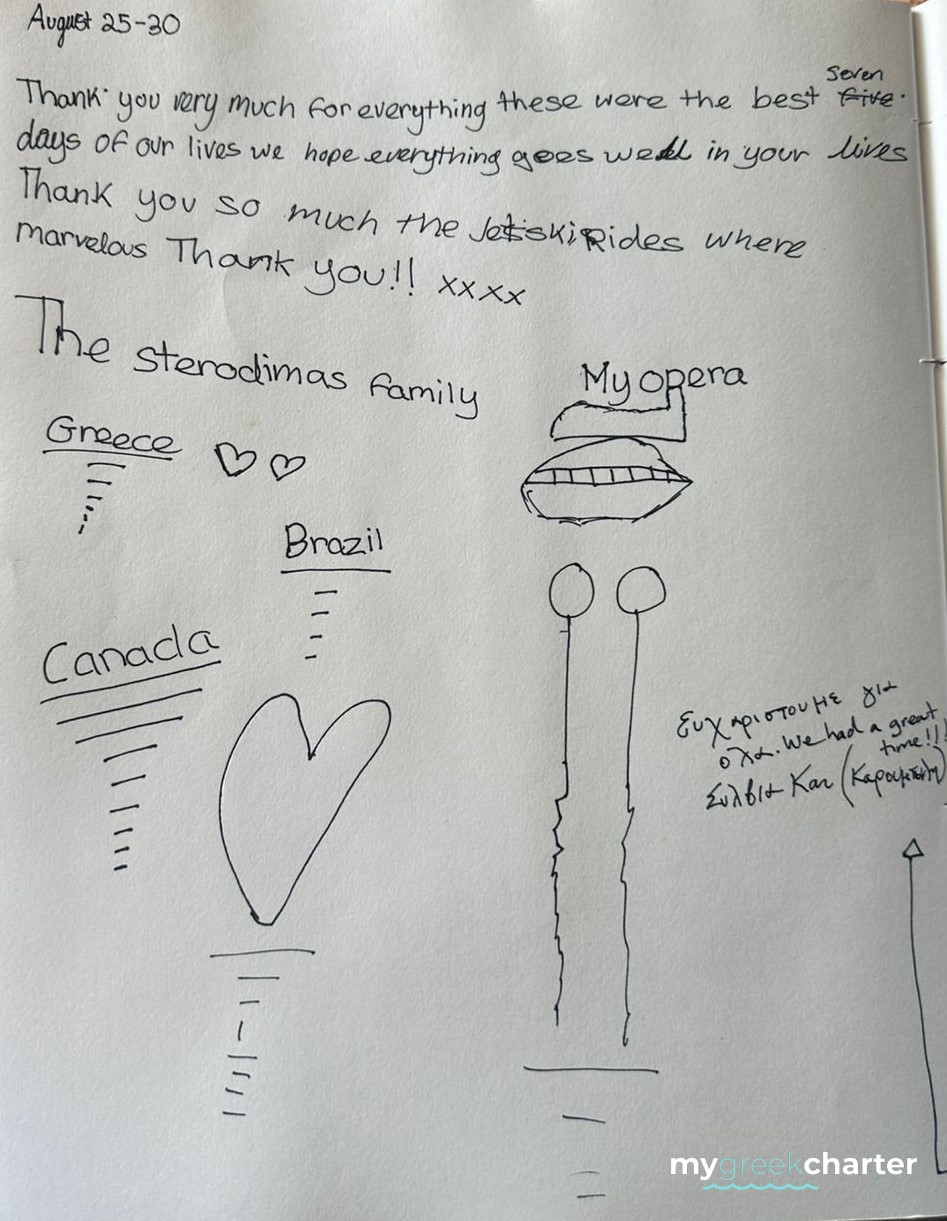 August 25-30
seven
Thank you very much for everything these were the best five
days of our lives we hope everything goes well in your lives
Thank you so much the Jetski Rides where
marvelous Thank you!! xxxx
The sterodimas family
My opera
Greece
Brazil
Canada
Ευχαριστουμε για
ολα. We had a great
time!!!
Συλβια Καν
mygreekcharter